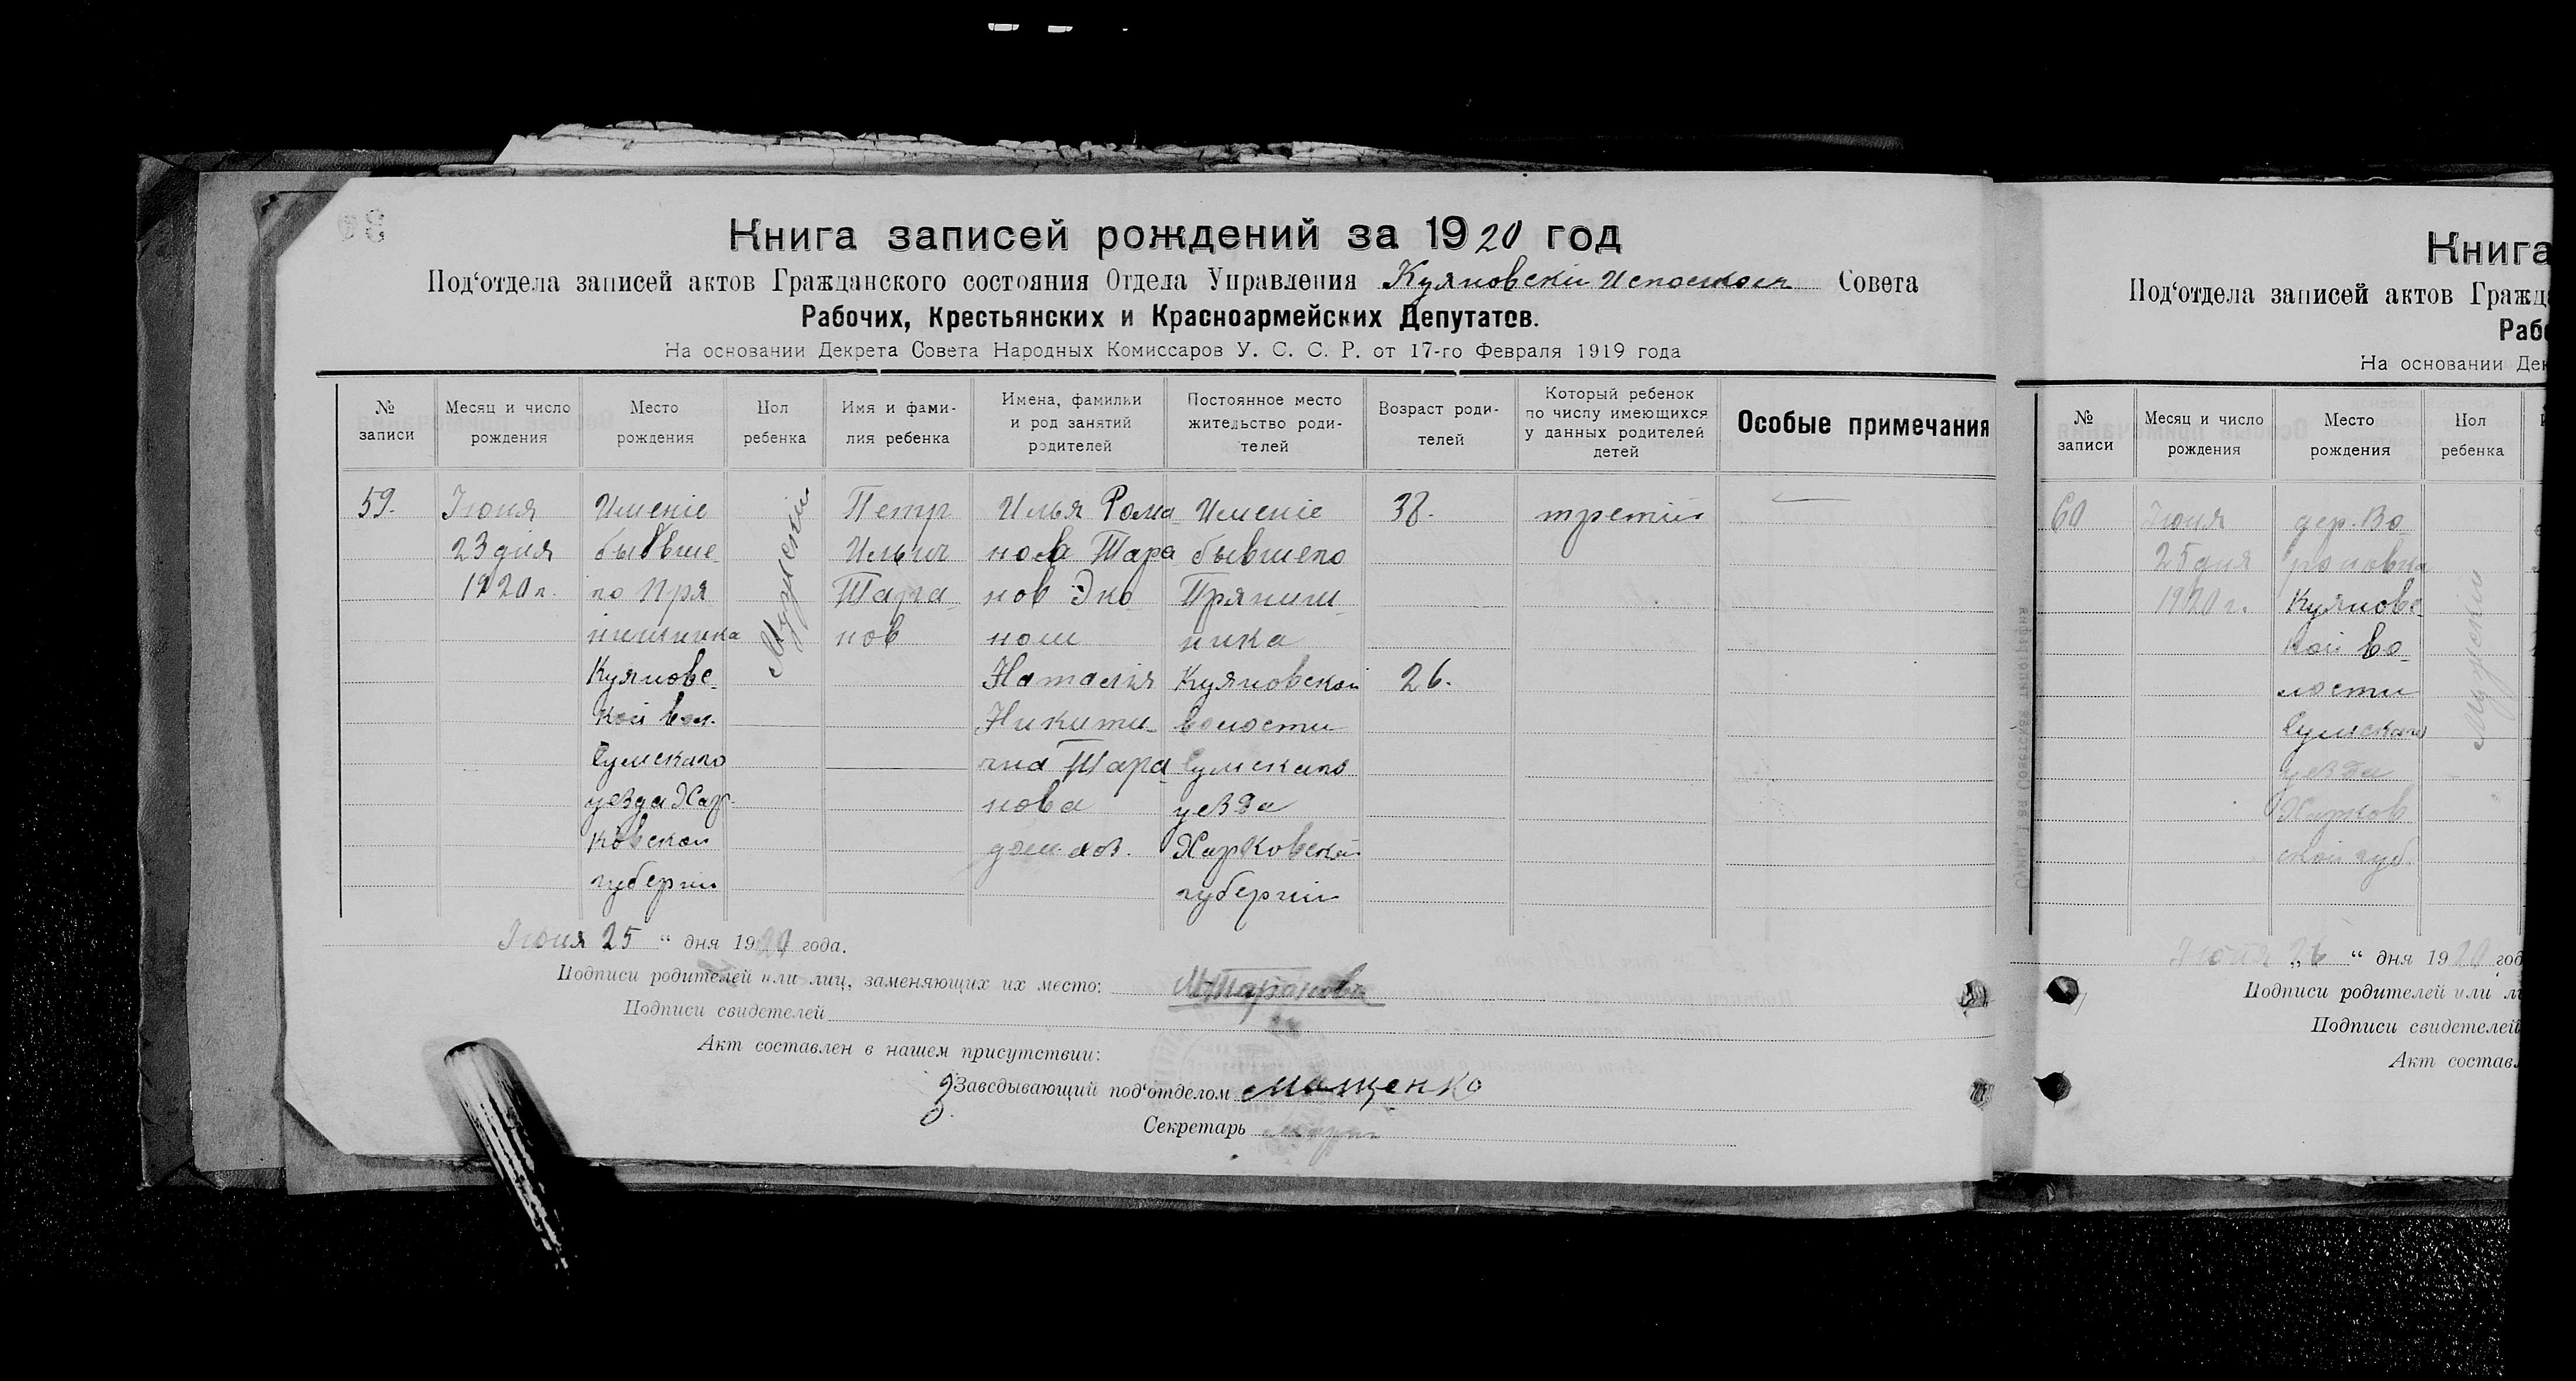 Книга записей рождений за 1920 год
Под‘отдела записей актов Гражданского состояния Отдела Управления Куяновскій Исполком Совета
Рабочих, Крестьянских и Красноармейских Депутатов.
На основании Декрета Совета Народных Комиссаров У. С. С. Р. от 17-го Февраля 1919 года
№ записи
Месяц и число рождения
Место рождения
Пол ребенка
Имя и фами-
лия ребенка
Имена, фамилии
и род занятий
родителей
Постоянное место
жительство роди-
телей
Возраст роди-
телей
Который ребенок
по числу имеющихся
у данных родителей
детей
Особые примечания
59.
Іюня
23 дня
1920 г.
Именіе
бывше-
го Пря
нишника
Куяновс-
кой вол.
Сумскаго
уезда Хар-
ковской
губерніи
Мужескій
Петр
Ильич
Тара-
нов
Илья Рома
нов Тара
нов Эко-
ном
Наталія
Никити-
чна Тара
нова
дом хоз.
Именіе
бывшего
Прянишн-
ника
Куяновской
волости
Сумскаго
уезда
Харковской
губерніи
38.
26.
третій
Іюня 25 “ дня 1920 года.
Подписи родителей или лиц, заменяющих их место: Таранова
Подписи свидетелей
Акт составлен в нашем присутствии:
Заведывающий под‘отделом Мащенко
Секретарь
Книга
Под‘отдела записей актов Гражд
Рабо
На основании Дек
№ записи
Месяц и число рождения
Место рождения
Пол ребенка
60
Іюня
25 дня
1920 г.
дер. Во-
роновка
Куяновс-
кой во-
лости
Сумскаго
уезда
Харков
ской губ.
Мужескій
Іюня 26 “ дня 1920 год
Подписи родителей или ли
Подписи свидетелей
Акт состав